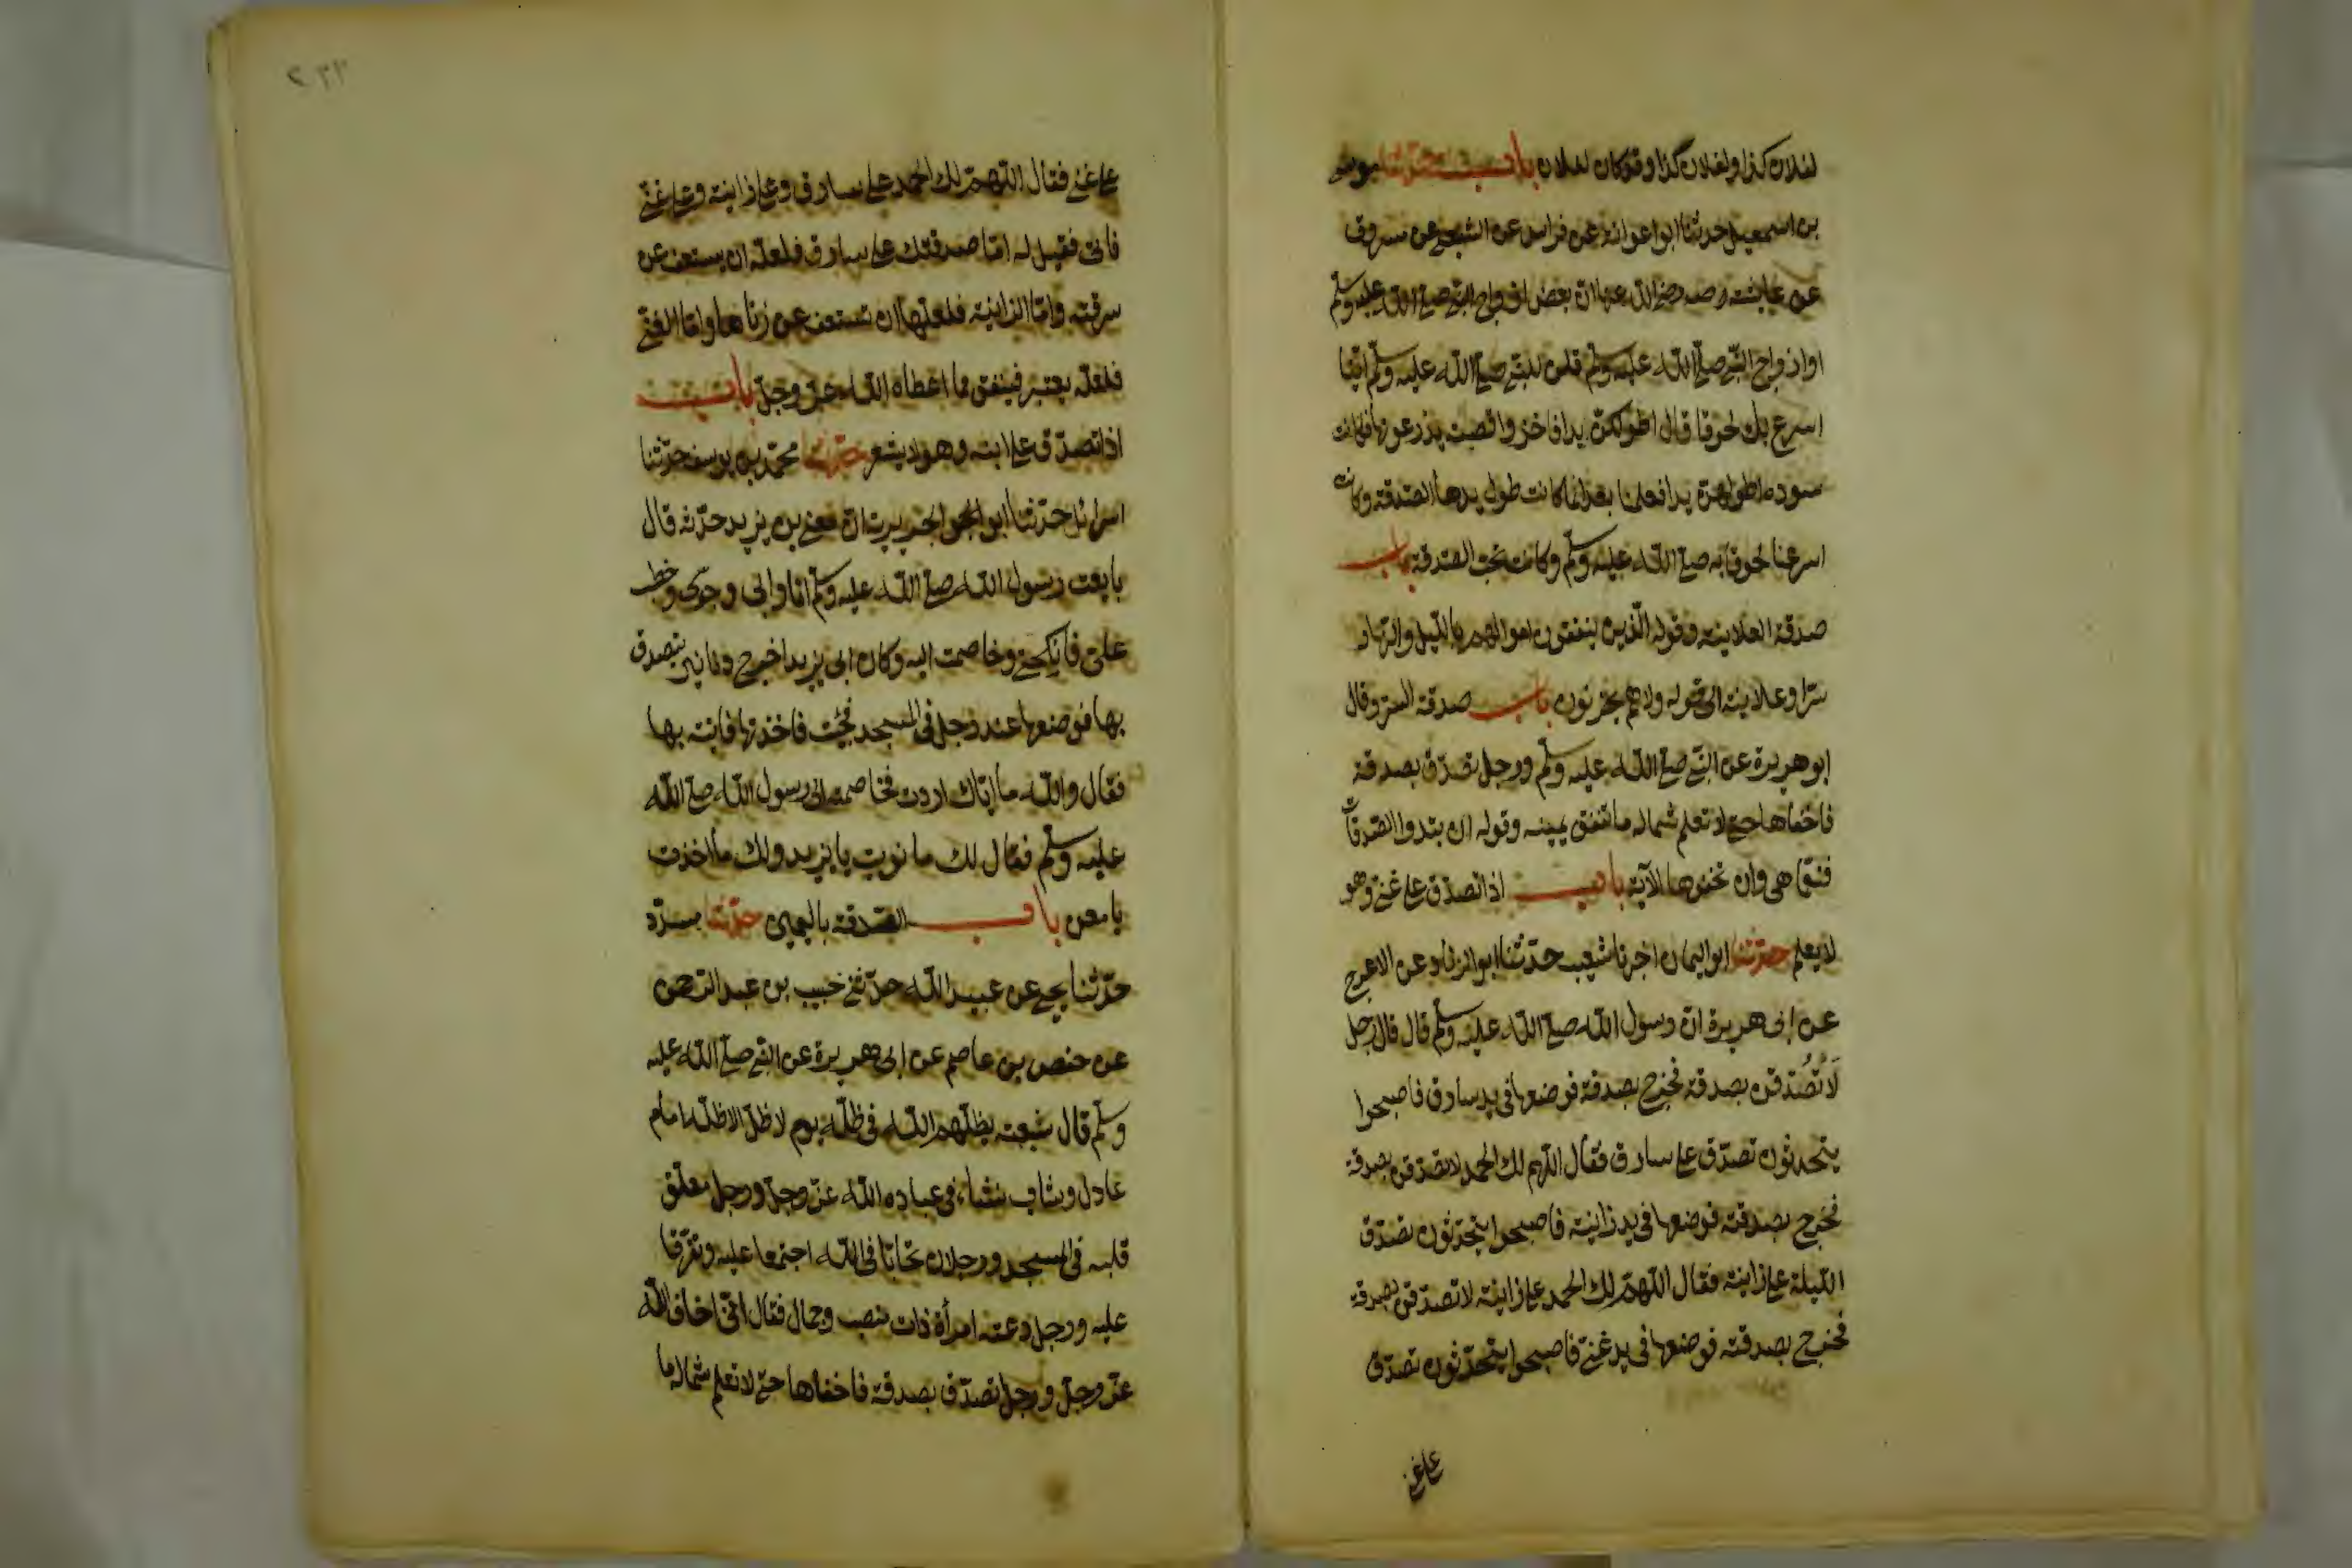 لفلان كذا ولفلان كذا وقد كان لفلان باب حدثنا موسى
بن اسمعيل حدثنا ابو عوانة عن فراس عن الشعبي عن مسروق
عن عايشة رضي الله عنها ان بعض ازواج النبي صلى الله عليه وسلم
او ازواج النبي صلى الله عليه وسلم قلن للنبي صلى الله عليه وسلم اينا
اسرع بك لحوقا قال اطولكن يدا فاخذوا قصبة يذرعونها فكانت
سودة اطولهن يدا فعلمنا بعد انما كانت طول يدها الصدقة وكانت
اسرعنا لحوقا به صلى الله عليه وسلم وكانت تحب الصدقة باب
صدقة العلانية وقوله الذين ينفقون اموالهم بالليل والنهار
سرا وعلانية الى قوله ولا هم يحزنون باب صدقة السر وقال
ابو هريرة عن النبي صلى الله عليه وسلم ورجل تصدق بصدقة
فاخفاها حتى لا تعلم شماله ما تنفق يمينه وقوله ان تبدوا الصدقات
فنعما هي وان تخفوها الآية باب اذا تصدق على غني وهو
لا يعلم حدثنا ابو اليمان اخبرنا شعيب حدثنا ابو الزناد عن الاعرج
عن ابي هريرة ان رسول الله صلى الله عليه وسلم قال قال رجل
لَاَتَصُدّقن بصدقة فخرج بصدقة فوضعها في يد سارق فاصبحوا
يتحدثون تصدّق على سارق فقال اللهم لك الحمد لاتصدقن بصدقة
فخرج بصدقته فوضعها في يد زانية فاصبحوا يتحدّثون تصدّق
الليلة على زانية فقال اللهمّ لك الحمد على زانية لاتصدّقن بصدقة
فخرج بصدقته فوضعها في يد غنيّ فاصبحوا يتحدّثون تصدّق
على غني
٢٣٢
على غني فقال اللهمّ لك الحمد على سارق وعلى زانية وعلى غنيّ
فاتى فقيل له امّا صدقتك على سارق فلعلّه ان يستعف عن
سرقته وامّا الزانية فلعلّها ان تستعف عن زناها وامّا الغنيّ
فلعلّه يعتبر فينفق مما اعطاه الله عزّ وجلّ باب
اذا تصدّق على ابنه وهو لا يشعر حدّثنا محمّد بن يوسف حدّثنا
اسرائل حدّثنا ابو الجويرية انّ معن بن يزيد حدّثه قال
بايعت رسول الله صلى الله عليه وسلّم انا وابي وجدّي وخطب
عليّ فانكحني وخاصمت اليه وكان ابي يزيد اخرج دنانير يتصدق
بها فوضعها عند رجل في المسجد فجئت فاخذتها فاتيته بها
فقال والله ما ايّاك اردت فخاصمته الى رسول الله صلى الله
عليه وسلّم فقال لك ما نويت يا يزيد ولك ما اخذت
يا معن باب الصّدقة باليمين حدّثنا مسدّد
حدّثنا يحيى عن عبيد الله حدّثني خبيب بن عبد الرّحمن
عن حفص بن عاصم عن ابي هريرة عن النبي صلى الله عليه
وسلّم قال سبعة يظلّهم الله في ظلّه يوم لا ظلّ الا ظلّه امام
عادل وشاب نشأ في عبادة الله عزّ وجلّ ورجل معلّق
قلبه في المسجد ورجلان تحابّا في الله اجتمعا عليه وتفرّقا
عليه ورجل دعته امرأة ذات منصب وجمال فقال انّي اخاف الله
عزّ وجلّ ورجل تصدّق بصدقة فاخفاها حتى لا تعلم شماله ما